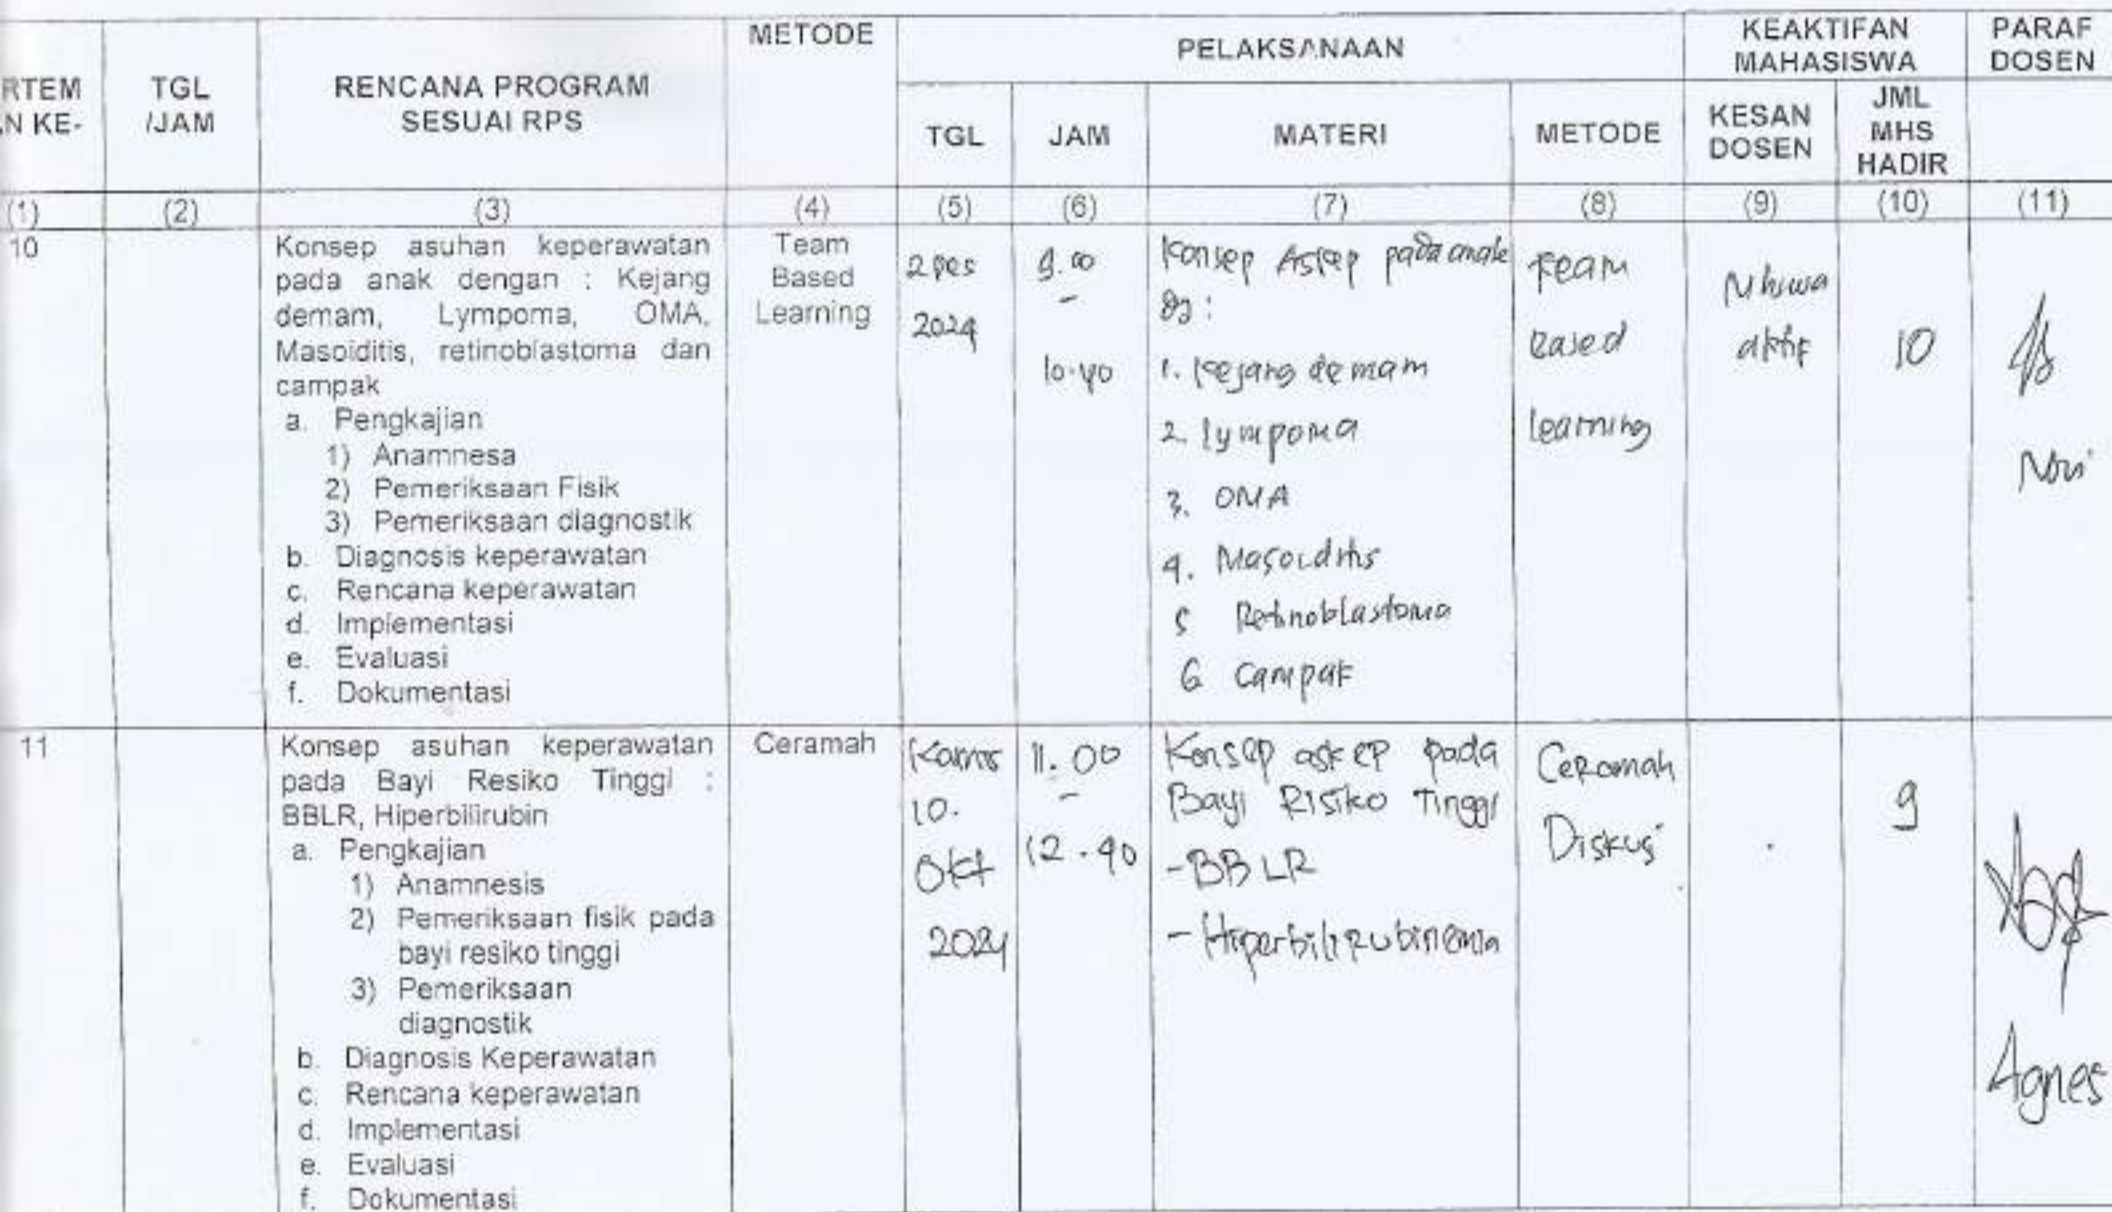 RTEM
N KE-
TGL
/JAM
RENCANA PROGRAM
SESUAI RPS
METODE
PELAKSANAAN
KEAKTIFAN
MAHASISWA
PARAF
DOSEN
TGL
JAM
MATERI
METODE
KESAN
DOSEN
JML
MHS
HADIR
(1)
(2)
(3)
(4)
(5)
(6)
(7)
(8)
(9)
(10)
(11)
10
Konsep asuhan keperawatan
pada anak dengan : Kejang
demam, Lympoma, OMA,
Masoiditis, retinoblastoma dan
campak
a. Pengkajian
1) Anamnesa
2) Pemeriksaan Fisik
3) Pemeriksaan diagnostik
b. Diagnosis keperawatan
c. Rencana keperawatan
d. Implementasi
e. Evaluasi
f. Dokumentasi
Team
Based
Learning
2 Des
2024
9.00
-
10.40
Konsep Askep pada anak
dg :
1. Kejang demam
2. Lympoma
3. OMA
4. Masoiditis
5 Retinoblastoma
6 Campak
Team
Based
learning
Mhswa
aktif
10
Novi
11
Konsep asuhan keperawatan
pada Bayi Resiko Tinggi :
BBLR, Hiperbilirubin
a. Pengkajian
1) Anamnesis
2) Pemeriksaan fisik pada
bayi resiko tinggi
3) Pemeriksaan
diagnostik
b. Diagnosis Keperawatan
c. Rencana keperawatan
d. Implementasi
e. Evaluasi
f. Dokumentasi
Ceramah
Kamis
10.
Okt
2024
11.00
-
12.40
Konsep askep pada
Bayi Risiko Tinggi
- BBLR
- Hiperbilirubinemia
Ceramah
Diskusi
9
Agnes